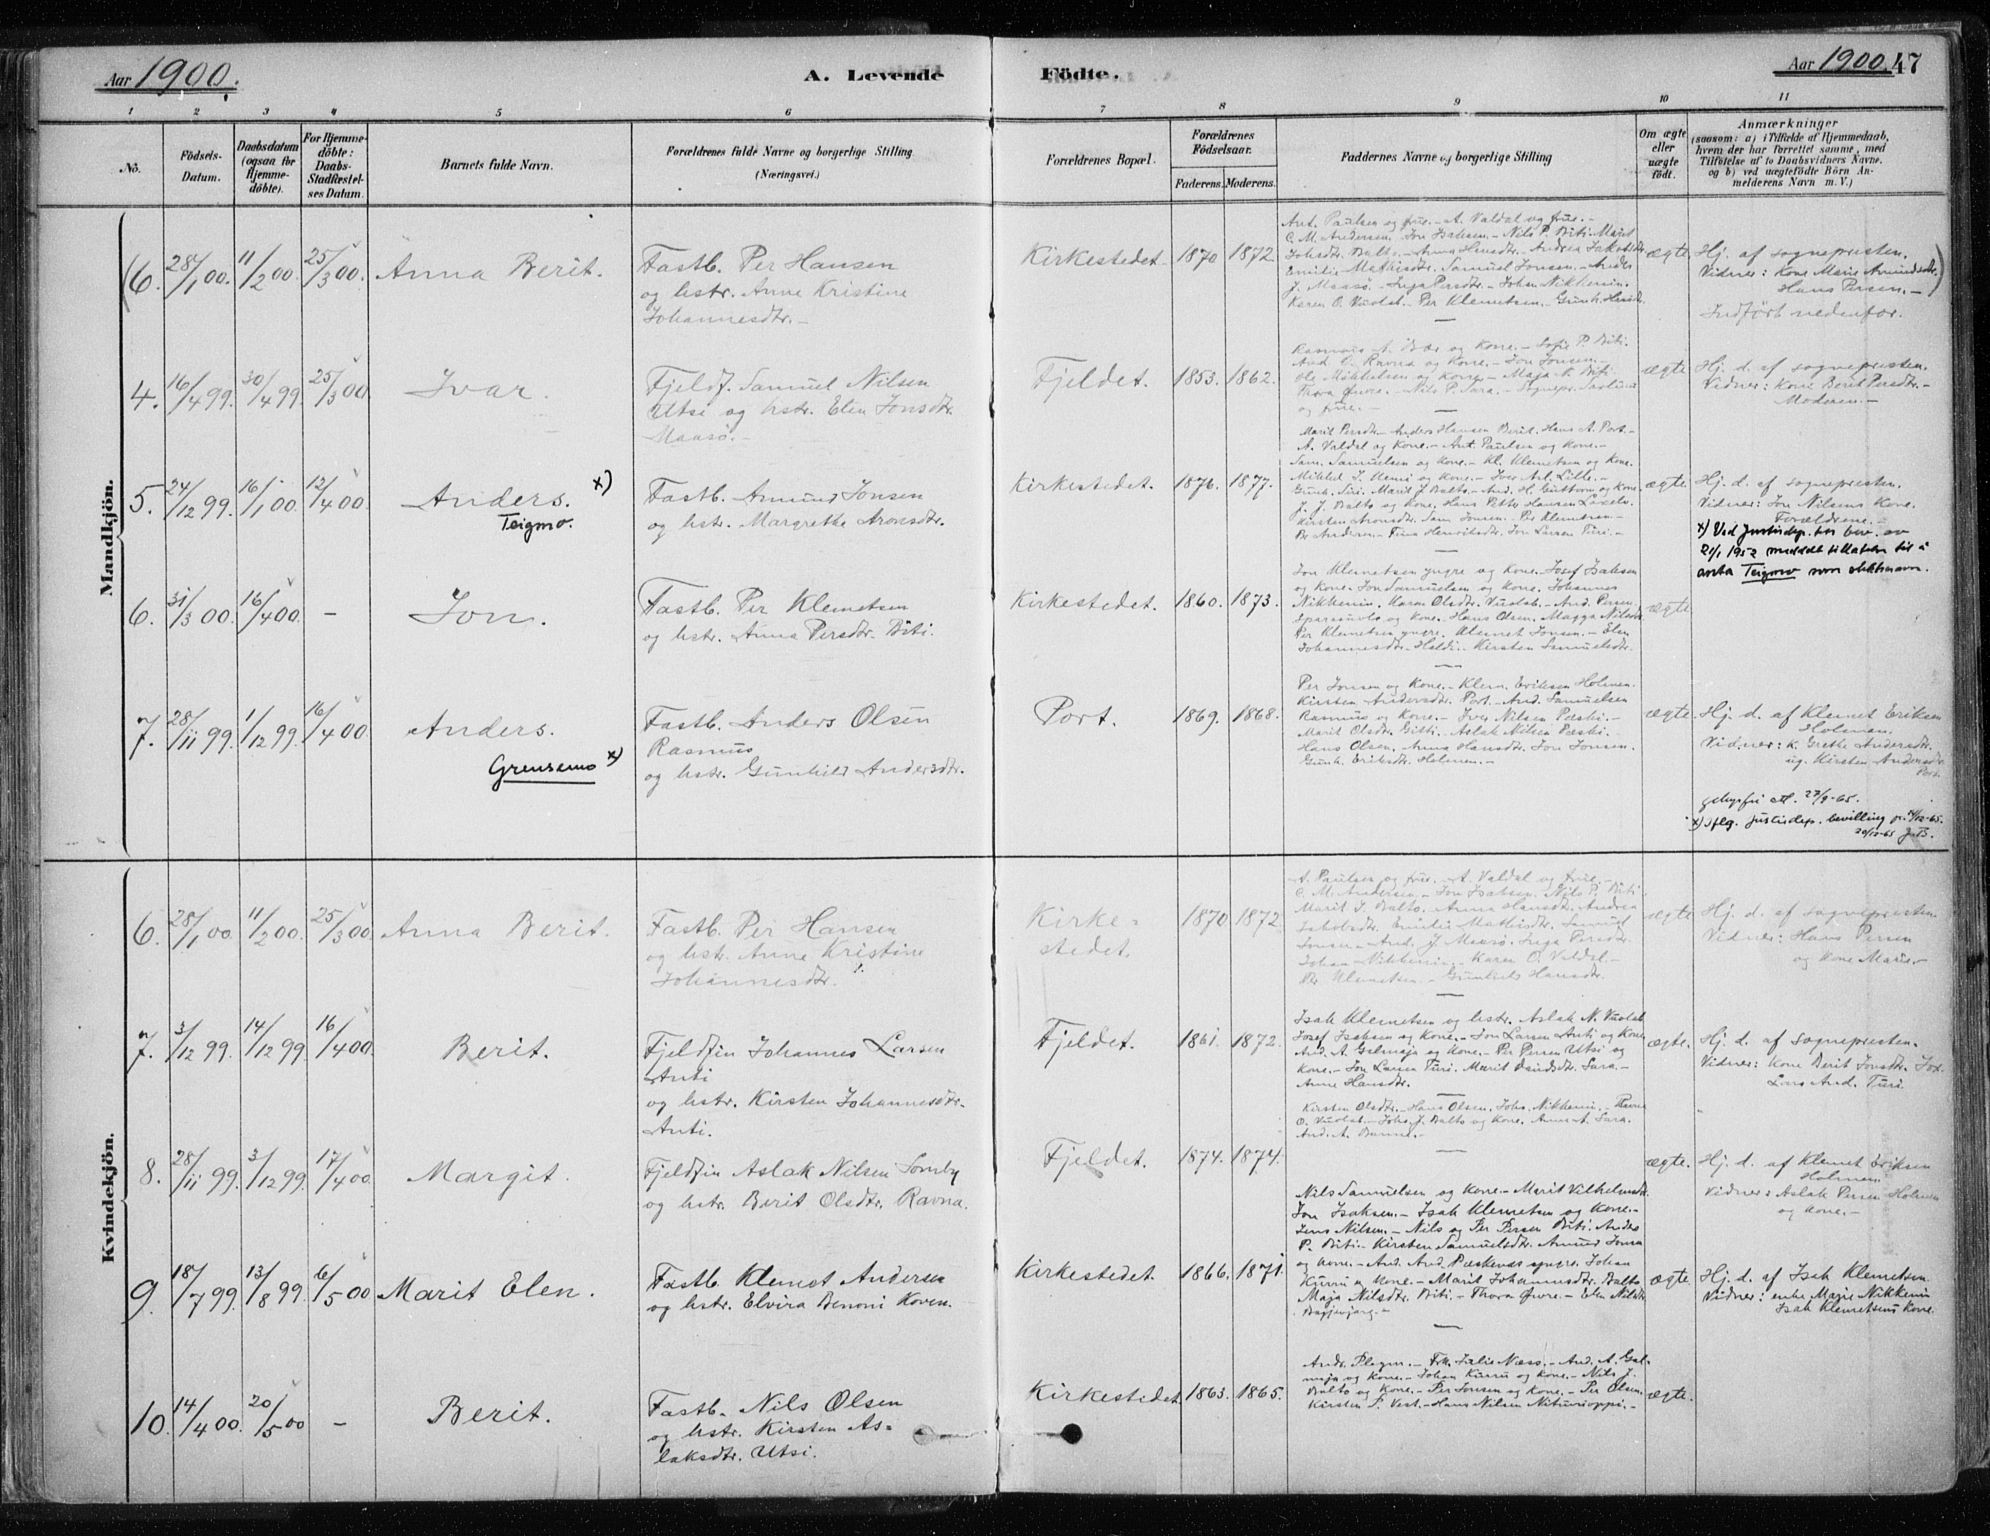 Aar 1900.
A. Levende Födte.
Aar 1900. 47
1 2 3 4 5 6 7 8 9 10 11
No.
Födsels-
Datum.
Daabsdatum
(ogsaa for
Hjemme-
döbte).
For Hjemme-
döbte:
Daabs-
Stadfæstel-
ses Datum.
Barnets fulde Navn.
Forældrenes fulde Navne og borgerlige Stilling
(Næringsvei.)
Forældrenes Bopæl.
Forældrenes
Födselsaar.
Faderens. Moderens.
Faddernes Navne og borgerlige Stilling
Om ægte
eller
uægte
födt.
Anmærkninger
(saasom: a) i Tilfælde af Hjemmedaab,
hvem der har forrettet samme, med
Tilföielse af to Daabsvidners Navne.
og b) ved uægtefödte Börn An-
melderens Navn m. V.)
Mandkjön.
(6. 28/1 00. 11/2 00. 25/3 00. Anna Berit.
Fastb. Per Hansen
og hstr. Anne Kristine
Johannesdtr. –
Kirkestedet. 1870 1872
Ant. Paulsen og frue. – A. Valdal og frue. –
C. M. Andersen. Jon Isaksen. – Nils P. Biti. Marit
Emilie Mathisdtr. Samuel Jonsen. – Anders
J. Maasø. – Inga Persdtr. – Johan Nikkenin.
Karen O. Vuolab. – Per Klemetsen. – Gunh. Hansdtr.
ægte
Hj. af sognepresten.
Vidner: Kone Marie Amundsdtr.
Hans Persen. – )
Indført nedenfor.
4. 16/4 99. 30/4 99. 25/3 00 Ivar.
Fjeldf. Samuel Nilsen
Utsi og hstr. Elen Jonsdtr.
Maasø. –
Fjeldet. 1853. 1862.
Rasmus A. Bær og Kone. – Sofie P. Biti.
And. O. Ravna og Kone. – Jon Jonsen. –
Ole Mikkelsen og Kone. – Maja N. Biti
Thora Qvre. – Nils P. Sara. – Sognepr.
og frue. –
ægte
Hj. d. af sognepresten.
Vidner: Kone Berit Persdtr. –
Moderen. –
5. 24/12 99. 16/1 00. 12/4 00. Anders. x)
Teigmo.
Fastb. Amund Jonsen
og hstr. Margrethe Aronsdtr.
Kirkestedet. 1876. 1877.
Marit Persdtr. – Anders Hansen Berit. Hans A. Port. –
A. Valdal og Kone. – Ant. Paulsen og Kone. –
Sam. Samuelsen og Kone. – Kl. Klemetsen og Kone.
J. J. Balto og Kone. Hans Petter Hansen
Kirsten Aronsdtr. Sam Jonsen. Per Klemetsen –
Jon Larsen Turi. –
ægte.
Hj. d. af sognepresten.
Vidner: Jon Nilsens Kone.
Forældrene. –
x) Ved Justisdep.tes bev. av
21/1 1952 meddelt tillatelse til å
anta Teigmo som slektsnavn.
6. 31/3 00. 16/4 00. – Jon.
Fastb. Per Klemetsen
og hstr. Anna Persdtr. Biti.
Kirkestedet. 1860. 1873.
Jon Klemetsen yngre og Kone. Josef Isaksen
og Kone. Jon Samuelsen og Kone. Johannes
Nikkenin. Karen Olsdtr. Vuolab. – And. Persen
og Kone. Hans Olsen. Magga Nilsdtr.
Per Klemetsen yngre. Klemet Jonsen. – Elen
Johannesdtr. Haldi. – Kirsten Samuelsdtr.
ægte
7. 28/11 99. 1/12 99. 16/4 00 Anders.
Grensemo x)
Fastb. Anders Olsen
Rasmus
og hstr. Gunhild Andersdtr.
Port. 1869. 1868.
Per Jonsen og Kone. – Klem. Eriksen Holmen.
Kirsten Andersdtr. Port. – And. Samuelsen
Rasmus og Kone. – Iver Nilsen Pæski. –
Marit Olsdtr. Gitti. – Aslak Nilsen Pæski. –
Hans Olsen. – Anna Hansdtr. Jon Jonsen.
Gunh. Eriksdtr. Holmen. –
ægte.
Hj. d. af Klemet Eriksen
Holmen.
Vidner: k. Grethe Andersdtr.
ug. Kirsten Andersdtr.
Port.
27/9-65.
x) Iflg. Justisdep. bevilling
Kvindekjön.
6. 28/1 00. 11/2 00. 25/3 00 Anna Berit.
Fastb. Per Hansen
og hstr. Anne Kristine
Johannesdtr.
Kirke-
stedet. 1870 1872
A. Paulsen og frue. – A. Valdal og frue. –
C. M. Andersen – Jon Isaksen. Nils P. Biti
Marit J. Balto. Anna Hansdtr. Andrea
Jakobsdtr. Emilie Mathisdtr. Samuel
Jonsen – And. J. Maasø. Inga Persdtr.
Johan Nikkenin. – Karen O. Valdal –
Per Klemetsen. – Gunhild Hansdtr.
ægte
Hj. d. af sognepresten
Vidner: Hans Persen
og Kone Marie. –
7. 3/12 99. 14/12 99. 16/4 00. Berit.
Fjeldfin Johannes Larsen
Anti
og hstr. Kirsten Johannesdtr.
Anti.
Fjeldet. 1861. 1872.
Isak Klemetsen og hstr. Aslak N. Vuolab
Josef Isaksen og Kone. – Jon Larsen Anti og Kone
And. A. Gelmaja og Kone. – Per Persen Utsi og
Kone. – Jon Larsen Turi. Marit Sara. –
Anne Hansdtr.
ægte.
Hj. d. af sognepresten.
Vidner: Kone Berit Jonsdtr.
Lars And. Turi
8. 28/11 99. 3/12 99. 17/4 00. Margit.
Fjeldfin Aslak Nilsen Somby
og hstr. Berit Olsdtr. Ravna.
Fjeldet. 1874. 1874.
Kirsten Olsdtr. – Hans Olsen. Johs. Nikkenin. –
O. Vuolab – Johs. J. Balto og Kone. Anne A. Sara.
ægte.
Hj. d. af Klemet Eriksen
Holmen.
Vidner: Aslak Persen Holmen
og Kone. –
9. 18/7 99. 13/8 99. 6/5 00 Marit Elen.
Fastb. Klemet Andersen
og hstr. Elvira Benoni Koven.
Kirkestedet. 1866. 1871.
Nils Samuelsen og Kone. – Marit Vilhelmsdtr.
Jon Isaksen. – Isak Klemetsen og Kone. –
Jens Nilsen. – Nils og Per Persen Biti. Anders
P. Biti. – Kirsten Samuelsdtr. Amund Jonsen
og Kone. – And. And. yngre. Johan
Kurru og Kone. – Marit Johannesdtr. Balto
Maja Nilsdtr. Biti. – Thora Qvre. – Elen Nilsdtr.
ægte.
Hj. d. af Isak Klemetsen.
Vidner: enke Marie Nikkenin
Isak Klemetsens Kone.
10. 14/4 00. 20/5 00 – Berit.
Fastb. Nils Olsen
og hstr. Kirsten As-
laksdtr. Utsi.
Kirkestedet. 1863. 1865.
Andr. – Frk. Julie Næss. – And. A. Gel-
maja og Kone. – Johan Kurru og Kone. – Nils J.
Balto og Kone. – Per Jonsen og Kone. – Per Olsen.
Kirsten P. Vest. – Hans Nilsen
ægte.